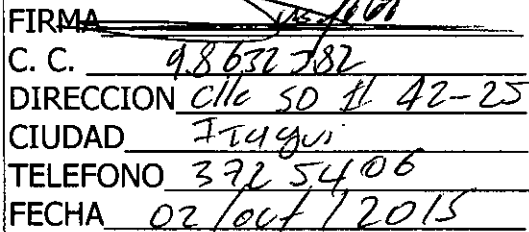 FIRMA
C. C. 98632382
DIRECCION Clle 50 # 42-25
CIUDAD Itagui
TELEFONO 372 54 06
FECHA 02/oct/2015